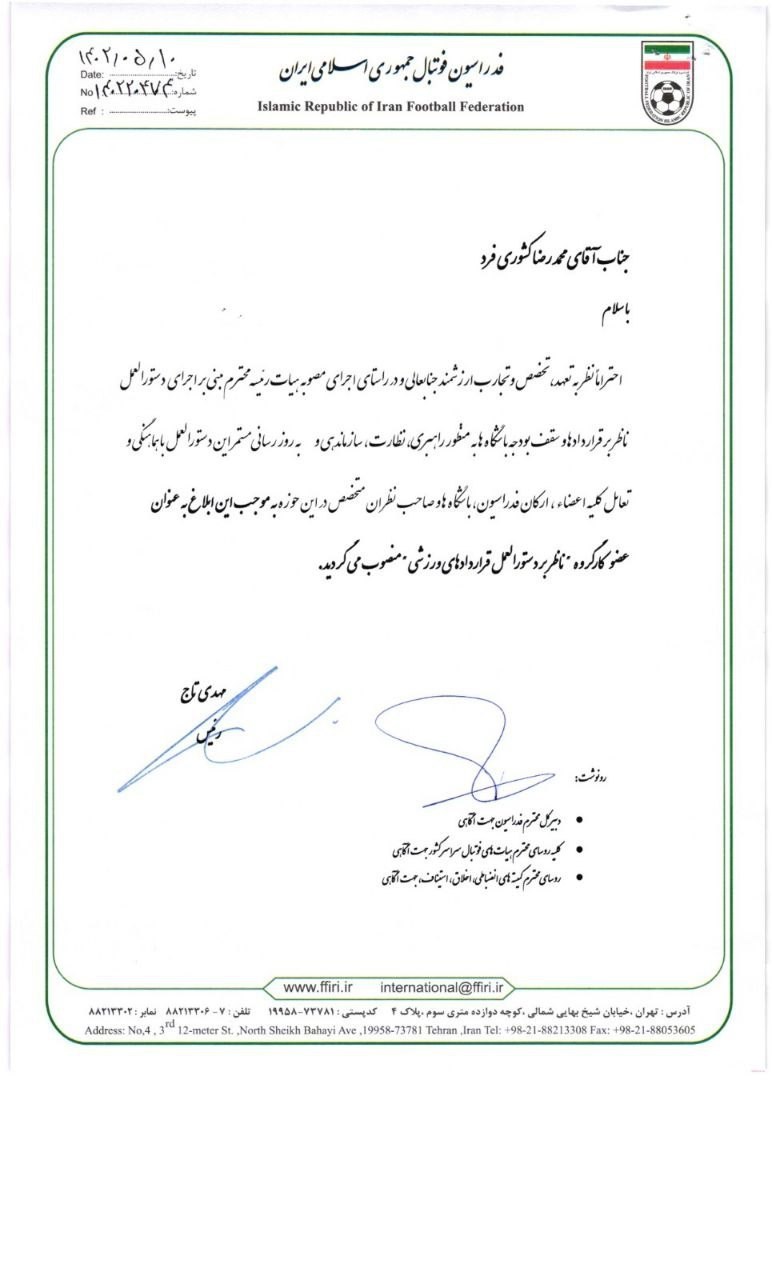 فدراسیون فوتبال جمهوری اسلامی ایران
Islamic Republic of Iran Football Federation
تاریخ: ۱۴۰۲/۰۵/۱۰
Date:
شماره: ۱۴۰۲۲۰۴۷۴
No
پیوست:
Ref :
جناب آقای محمدرضا کشوری فرد
باسلام
احتراماً نظر به تعهد، تخصص و تجارب ارزشمند جنابعالی و در راستای اجرای مصوبه هیات رئیسه محترم مبنی بر اجرای دستورالعمل
ناظر بر قراردادها و سقف بودجه باشگاه ها به منظور راهبری، نظارت، سازماندهی و به روز رسانی مستمر این دستورالعمل با هماهنگی و
تعامل کلیه اعضاء ، ارکان فدراسیون، باشگاه ها و صاحب نظران متخصص در این حوزه به موجب این ابلاغ به عنوان
عضو کارگروه "ناظر بر دستورالعمل قراردادهای ورزشی" منصوب می گردید.
مهدی تاج
رئیس
رونوشت:
• دبیرکل محترم فدراسیون جهت آگاهی
• کلیه روسای محترم هیات های فوتبال سراسر کشور جهت آگاهی
• روسای محترم کمیته های انضباطی، اخلاق، استیناف، جهت آگاهی
www.ffiri.ir international@ffiri.ir
آدرس : تهران ،خیابان شیخ بهایی شمالی ،کوچه دوازده متری سوم ،پلاک ۴ کدپستی : ۷۳۷۸۱-۱۹۹۵۸ تلفن : ۷ - ۸۸۲۱۳۳۰۶ نمابر : ۸۸۲۱۳۳۰۲
Address: No,4 , 3rd 12-meter St. ,North Sheikh Bahayi Ave ,19958-73781 Tehran ,Iran Tel: +98-21-88213308 Fax: +98-21-88053605